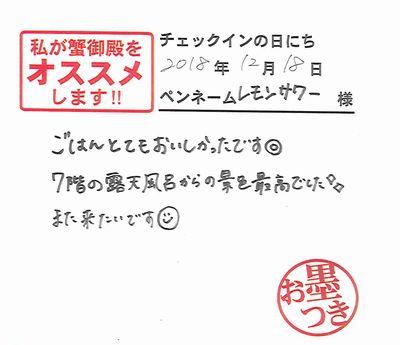 私が蟹御殿を
オススメ
します!!
チェックインの日にち
2018年12月18日
ペンネームレモンサワー 様
ごはんとてもおいしかったです◎
7階の露天風呂からの景色最高でした✨
また来たいです☺
お墨つき